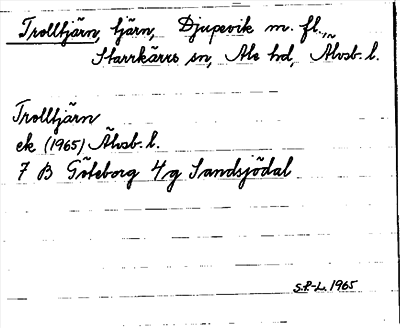 Trolltjärn, tjärn, Djupevik m. fl.,
Starrkärrs sn, Ale hd, Älvsb. l.
Trolltjärn
ek (1965) Älvsb. l.
7 B Göteborg 4/g Sandsjödal
S.P-L. 1965